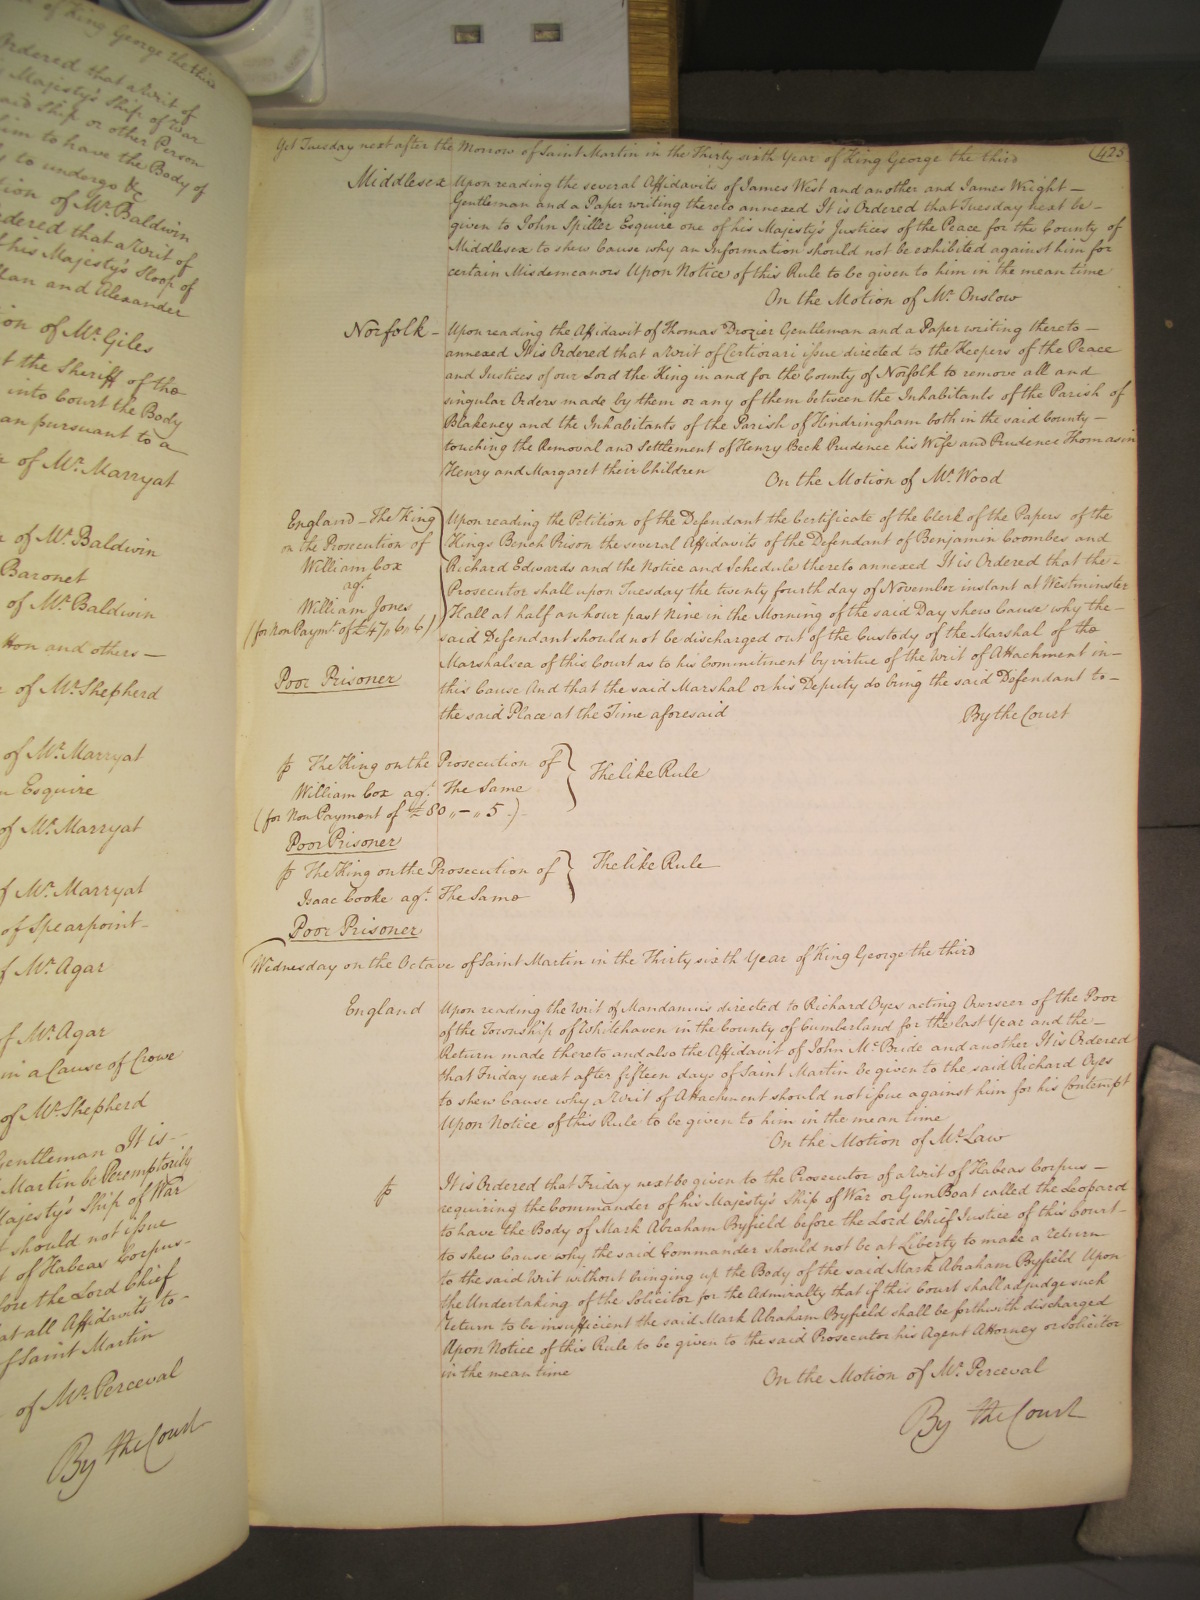 of King George the third
Ordered that a Writ of
Majesty's Ship of War
said Ship or other Person
him to have the Body of
to undergo &c
tion of Mr. Baldwin
Ordered that a Writ of
his Majesty's Sloop of
llan and Alexander
on of Mr. Giles
t the Sheriff of the
into Court the Body
an pursuant to a
of Mr. Marryat
of Mr. Baldwin
Baronet
of Mr. Baldwin
tton and others —
of Mr. Shepherd
of Mr. Marryat
Esquire
of Mr. Marryat
f Mr. Marryat
of Spearpoint -
f Mr. Agar
f Mr. Agar
in a Cause of Crowe
of Mr. Shepherd
Gentleman It is -
Martin be Peremptorily
Majesty's Ship of War
should not issue
of Habeas Corpus -
fore the Lord Chief
at all Affidavits to -
f Saint Martin
of Mr. Perceval
By the Court
Yet Tuesday next after the Morrow of Saint Martin in the Thirty sixth Year of King George the third
425
Middlesex Upon reading the several Affidavits of James West and another and James Wright —
Gentleman and a Paper writing thereto annexed It is Ordered that Tuesday next be -
given to John Spiller Esquire one of his Majesty's Justices of the Peace for the County of
Middlesex to shew Cause why an Information should not be exhibited against him for
certain Misdemeanors Upon Notice of this Rule to be given to him in the mean time
On the Motion of Mr. Onslow
Norfolk - Upon reading the Affidavit of Thomas Drozier Gentleman and a Paper writing thereto —
annexed It is Ordered that a Writ of Certiorari issue directed to the Keepers of the Peace
and Justices of our Lord the King in and for the County of Norfolk to remove all and
singular Orders made by them or any of them between the Inhabitants of the Parish of
Blakeney and the Inhabitants of the Parish of Hindringham both in the said County —
touching the Removal and Settlement of Henry Beck Prudence his Wife and Prudence Thomasin
Henry and Margaret their Children
On the Motion of Mr. Wood
England - The King
on the Prosecution of
William Cox
agt.
William Jones
(for Non Paymt. of £47,, 6,, 6)
Poor Prisoner
Upon reading the Petition of the Defendant the Certificate of the Clerk of the Papers of the
Kings Bench Prison the several Affidavits of the Defendant of Benjamin Coombes and
Richard Edwards and the Notice and Schedule thereto annexed It is Ordered that the -
Prosecutor shall upon Tuesday the twenty fourth day of November instant at Westminster
Hall at half an hour past Nine in the Morning of the said Day shew Cause why the -
said Defendant should not be discharged out of the Custody of the Marshal of the
Marshalsea of this Court as to his Commitment by virtue of the Writ of Attachment in -
this Cause And that the said Marshal or his Deputy do bring the said Defendant to -
the said Place at the Time aforesaid
By the Court
The King on the Prosecution of
William Cox agt. The Same
(for Non Payment of £80 ,, - ,, 5 .)
The like Rule
Poor Prisoner
The King on the Prosecution of
Isaac Cooke agt. The Same
The like Rule
Poor Prisoner
Wednesday on the Octave of Saint Martin in the Thirty sixth Year of King George the third
England Upon reading the Writ of Mandamus directed to Richard Oyes acting Overseer of the Poor
of the Township of Whitehaven in the County of Cumberland for the last Year and the -
Return made thereto and also the Affidavit of John Mc.Bride and another It is Ordered
that Friday next after fifteen days of Saint Martin be given to the said Richard Oyes
to shew Cause why a Writ of Attachment should not issue against him for his Contempt
Upon Notice of this Rule to be given to him in the mean time
On the Motion of Mr. Law
It is Ordered that Friday next be given to the Prosecutor of a Writ of Habeas Corpus —
requiring the Commander of his Majesty's Ship of War or Gun Boat called the Leopard
to have the Body of Mark Abraham Byfield before the Lord Chief Justice of this Court -
to shew Cause why the said Commander should not be at Liberty to make a return
to the said Writ without bringing up the Body of the said Mark Abraham Byfield Upon
the Undertaking of the Solicitor for the Admiralty that if this Court shall adjudge such
return to be insufficient the said Mark Abraham Byfield shall be forthwith discharged
Upon Notice of this Rule to be given to the said Prosecutor his Agent Attorney or Solicitor
in the mean time
On the Motion of Mr. Perceval
By the Court